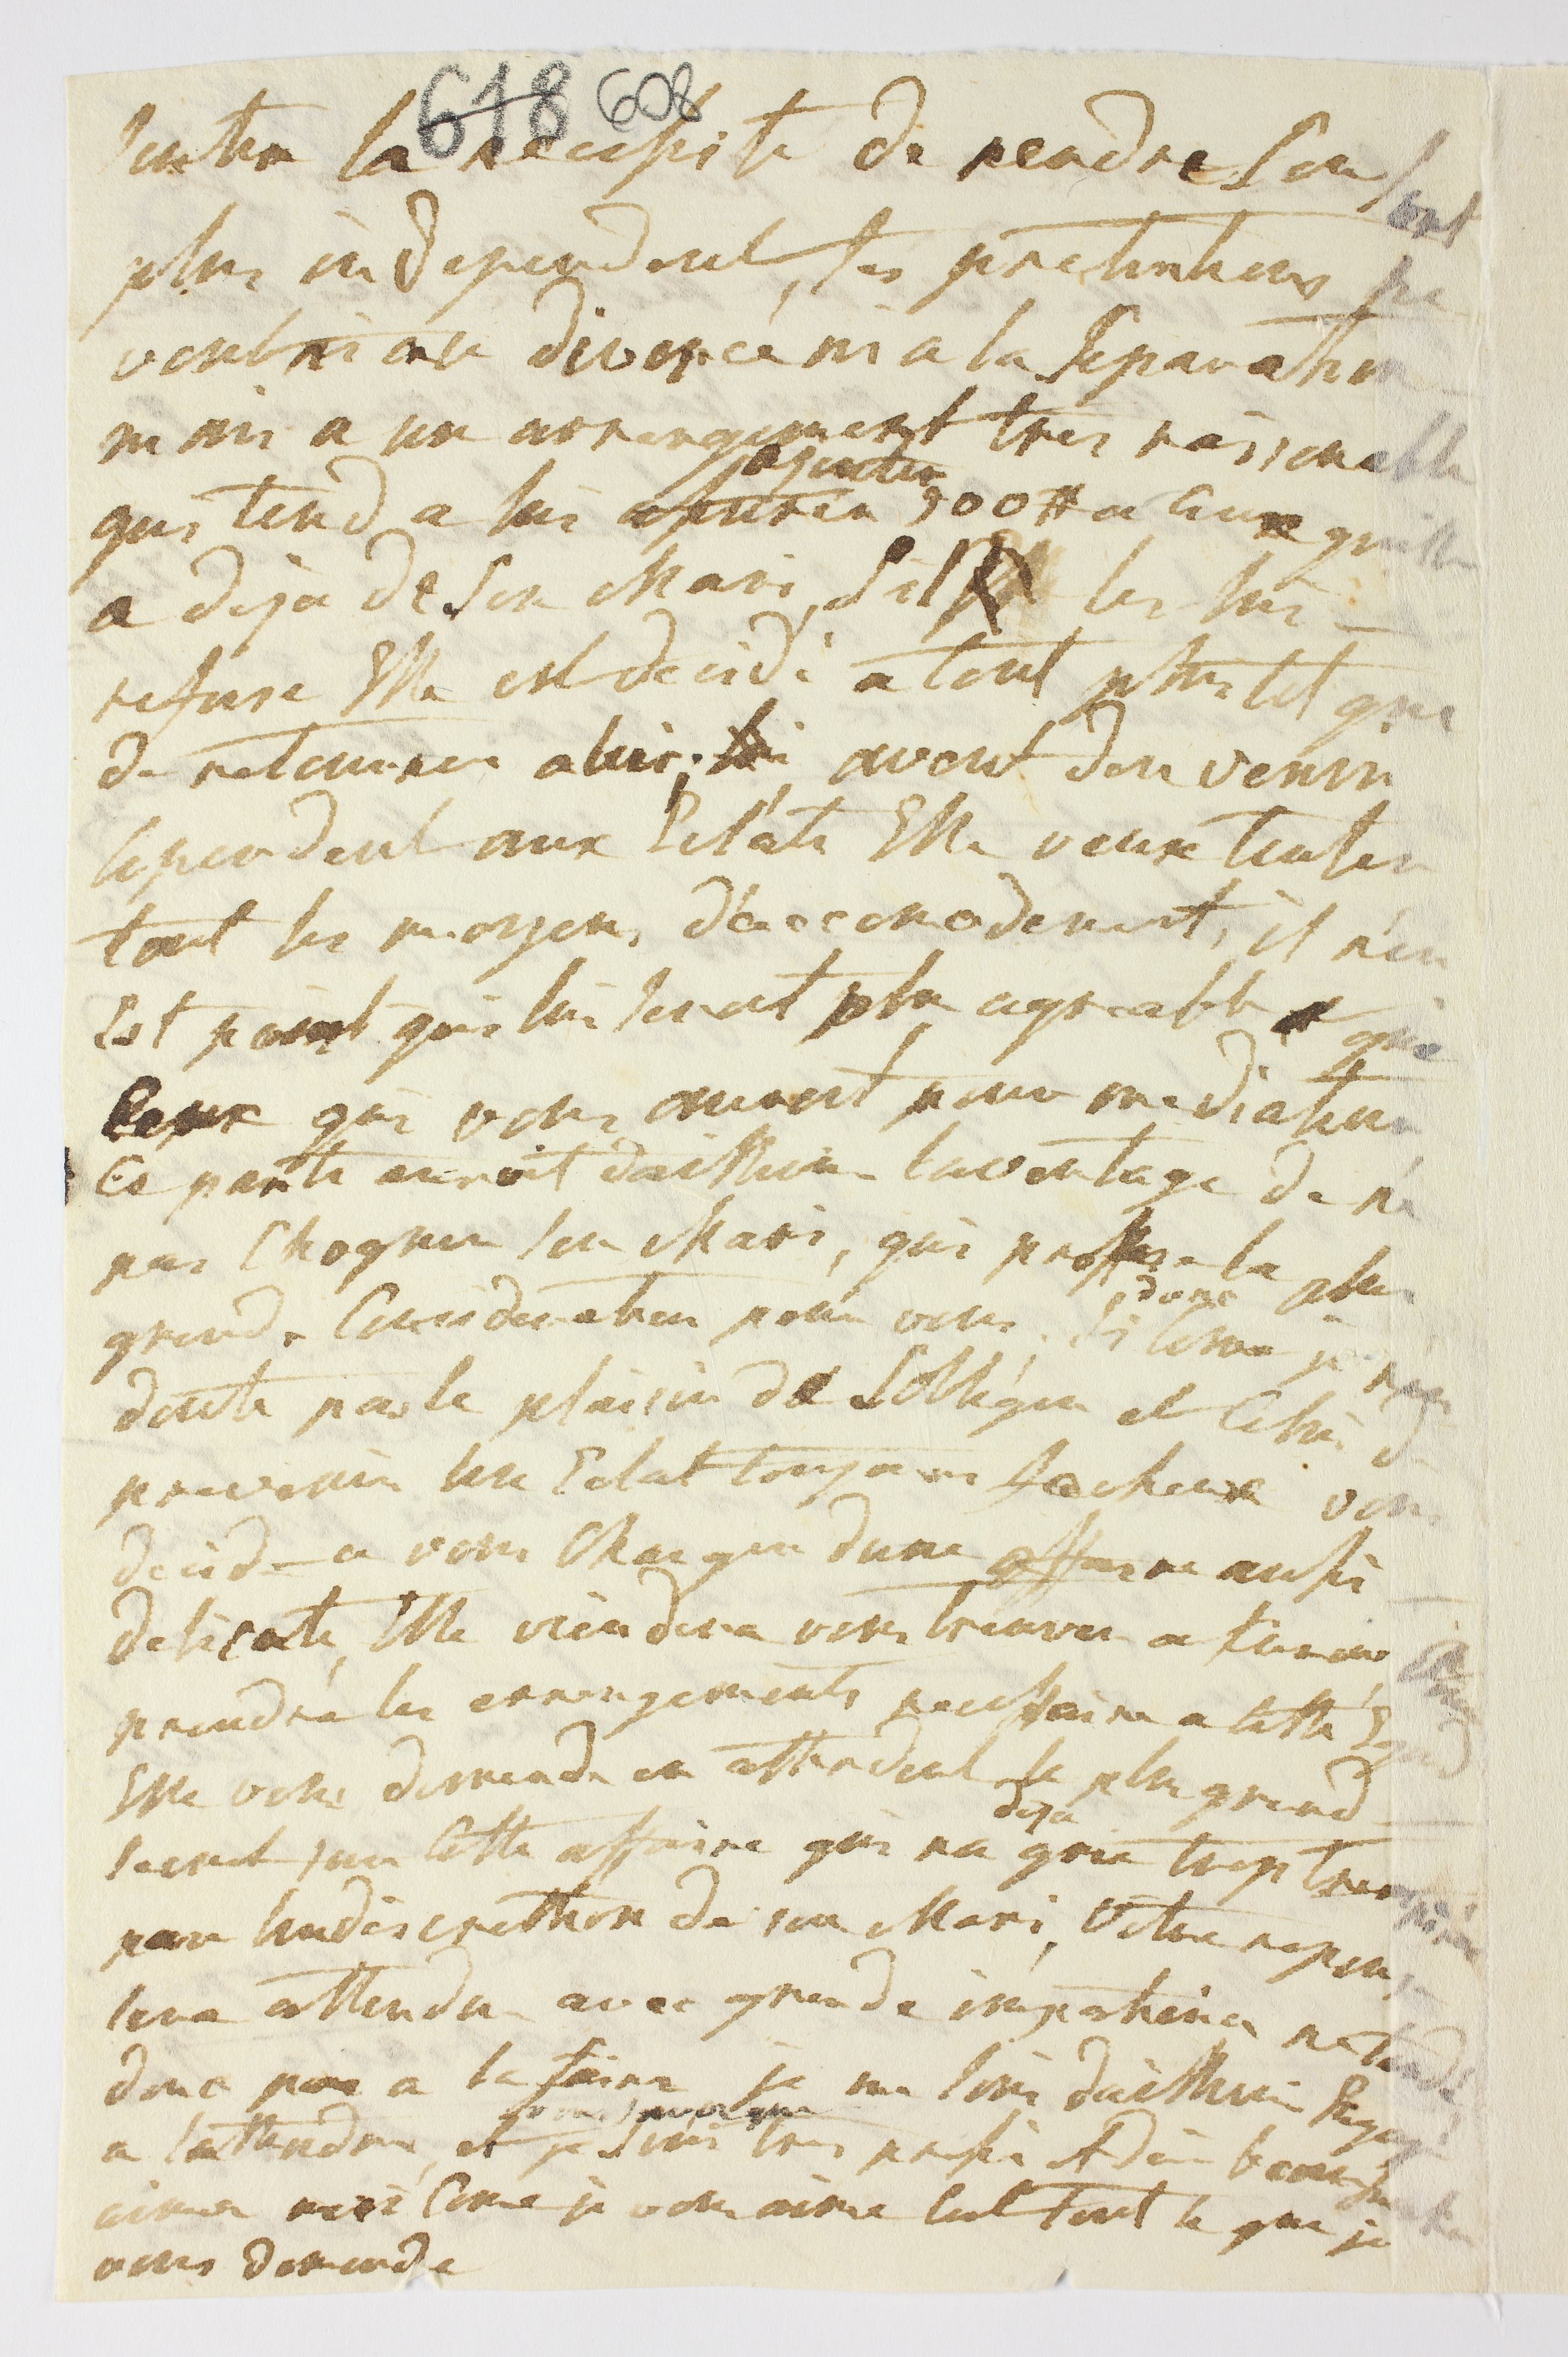 618 608
sentir la necessite de rendre son sort
plus independent, ses pretentions ne
vont ni au divorce ni a la separation
mais a un arrangement tres raisonable
qui tend a lui ajouter 500# a ceux quelle
a deja de son Mari, sil les lui
refuse Elle est decidé a tout plus tot que
de retourner a lui; avant den venir
cependent aux Eclats Elle veux tenter
tout les moyens d'accomodement, il nen
Est point qui lui serait plus agreable que
Ceux qui vous auront pour mediateur
Ce parti auroit dailleurs lavantage de ne
pas Choquer son Mari, qui professe la plus
grande Consideration pour vous. Si donc Come je nen
doute pas le plaisir de Lobliger et Celui de
prevenir un Eclat toujours facheux vous
decide a vous Charger dune affaire aussi
delicate, Elle viendera vous trouver a
prendre les arrengements necessaire a cette
Elle vous demende en attendent le plus grend
secret sur Cette affaire qui na deja que trop
par lindiscrethion de son Mari, Votre repon
sera attendu avec grende impatience ne tarde
donc pas a la faire je me suis dailleurs
a lattendre, et je suis tres pressé Adieu
aimer moi Come je vous aime cest tout ce que je
vous demende